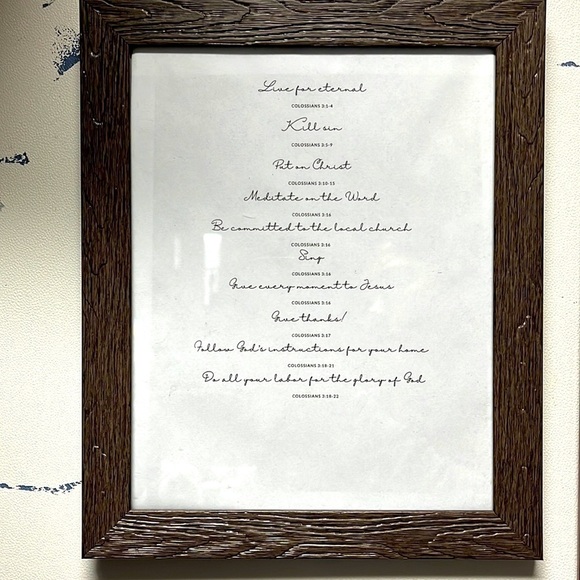 Live for eternal
COLOSSIANS 3:1-4
Kill sin
COLOSSIANS 3:5-9
Put on Christ
COLOSSIANS 3:10-15
Meditate on the Word
COLOSSIANS 3:16
Be committed to the local church
COLOSSIANS 3:16
Sing
COLOSSIANS 3:16
Give every moment to Jesus
COLOSSIANS 3:16
Give thanks!
COLOSSIANS 3:17
Follow God's instructions for your home
COLOSSIANS 3:18-21
Do all your labor for the glory of God
COLOSSIANS 3:18-22